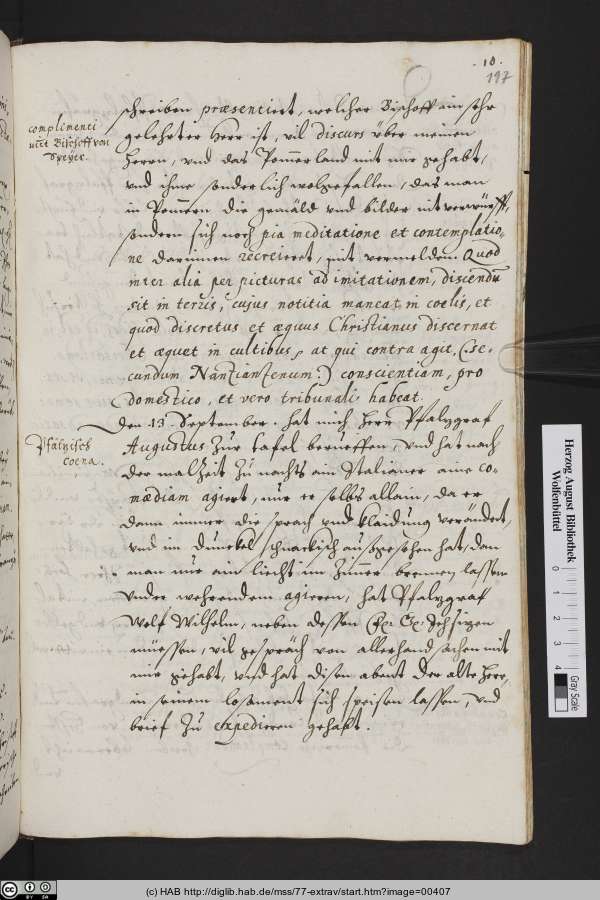 10.
197
complimenti
mitt Bischoff von
Speyer.
schreiben præsentiert, welcher Bischoff ein sehr
gelehrter Herr ist, vil discurs über meinen
Herrn, vnd das Pommerland mit mir gehabt,
vnd ihme sonderlich wolgefallen, das man
in Pomern die gemäld vnd bilder nit verwürfft,
sondern sich noch pia meditatione et contemplatio-
ne darinnen recreieret, mit vermelden Quod
inter alia per picturas ad imitationem, discendū
sit in terris, cujus notitia maneat in coelis, et
quod discretus et æquus Christianus discernat
et æquet in cultibus, at qui contra agit, (: se-
cundum Nanzianzenum :) conscientiam, pro
domestico, et vero tribunali habeat.
Pfältzisch
coena.
Den 13. September. hat mich Herr Pfalzgraf
Augustus zur tafel beruffen, vnd hat nach
der malzeit zu nachts ein Italianer eine co-
mædiam agiert, nur er selbs allain, da er
dann immer die sprach vnd klaidung verändert,
vnd im dunckel schnackisch außgesehen hat, dan
man nur ein liecht im Zimmer brennen lassen
Vnder wehrendem agieren, hat Pfalzgraf
Wolf Wilhelm, neben dessen Fr. Gn. Ich sizen
müessen, vil gespräch von allerhand sachen mit
mir gehabt, vnd hat disen abent der alte Herr,
in seinem losament sich speisen lassen, vnd
brief zu expedieren gehabt.
Herzog August Bibliothek
Wolfenbüttel
0 1 2 3 4
Gray Scale
(c) HAB http://diglib.hab.de/mss/77-extrav/start.htm?image=00407